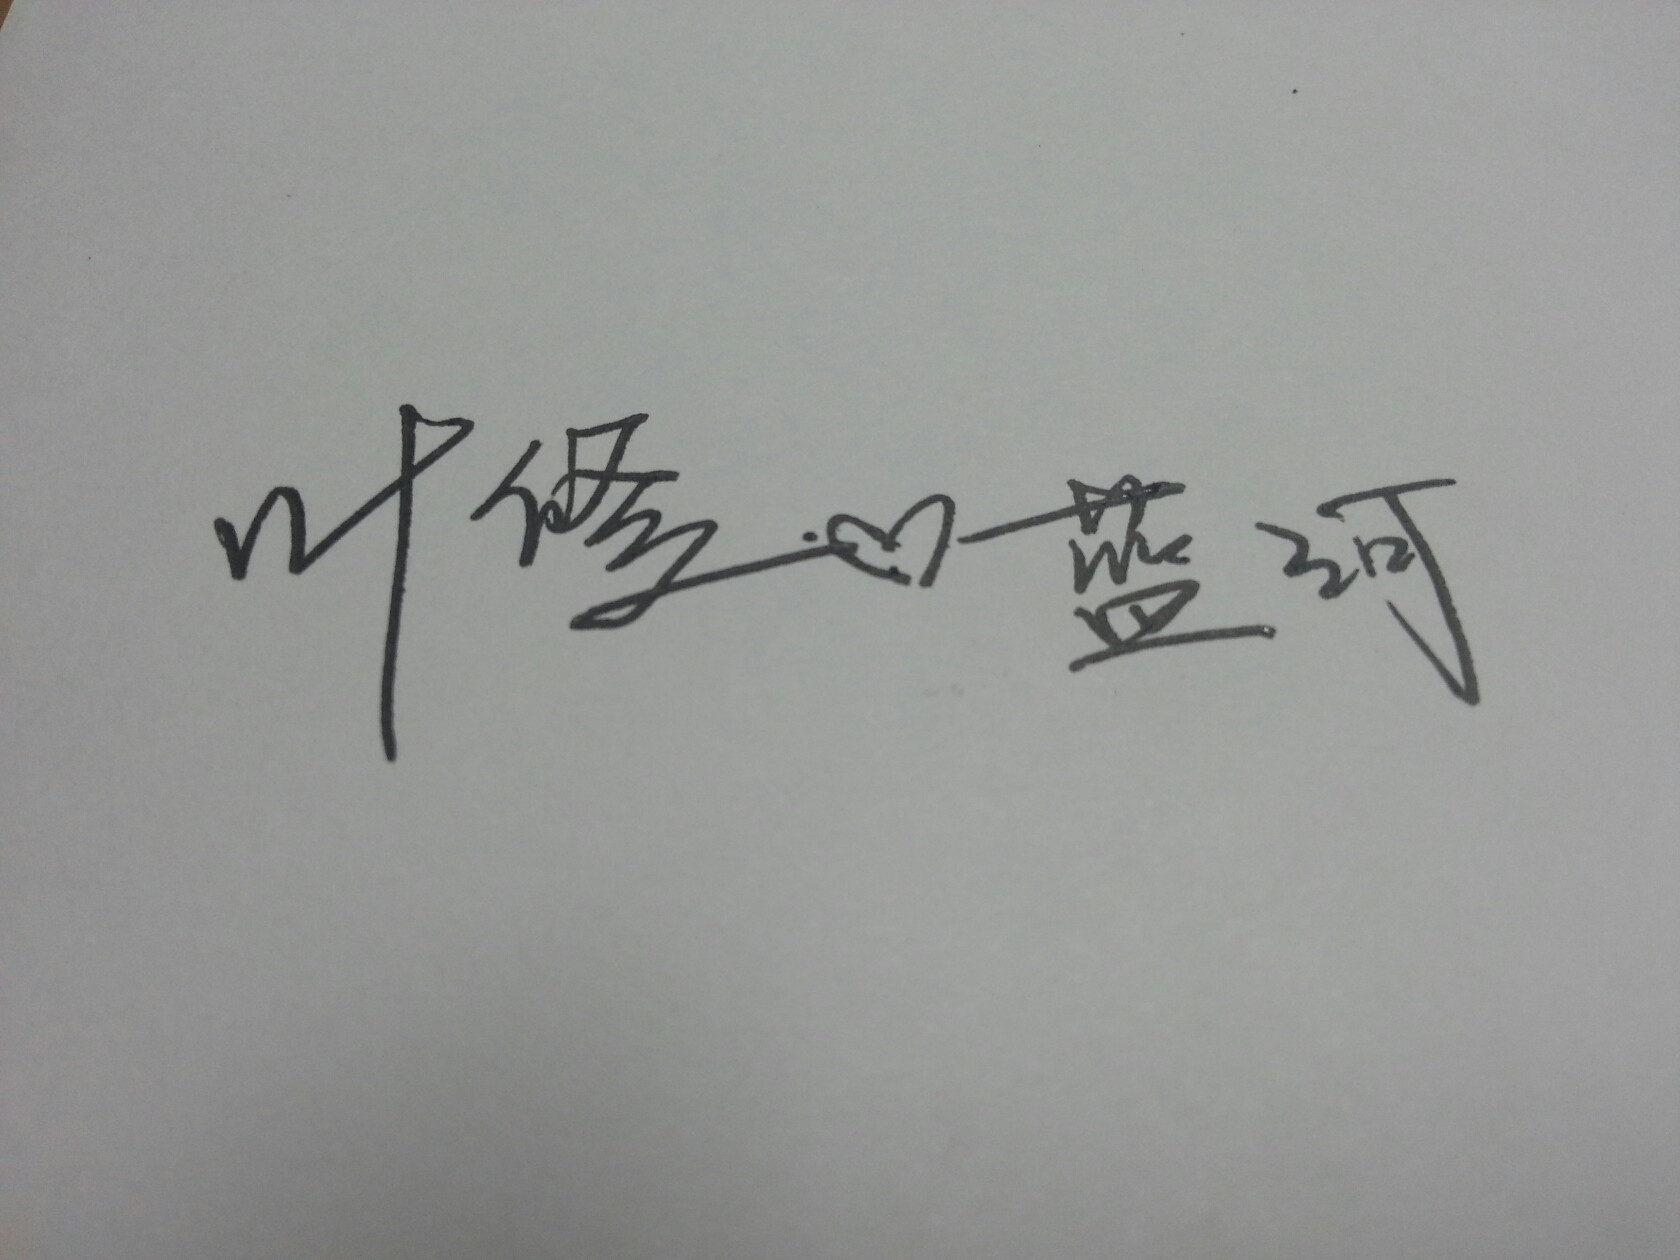 叶修♡蓝河